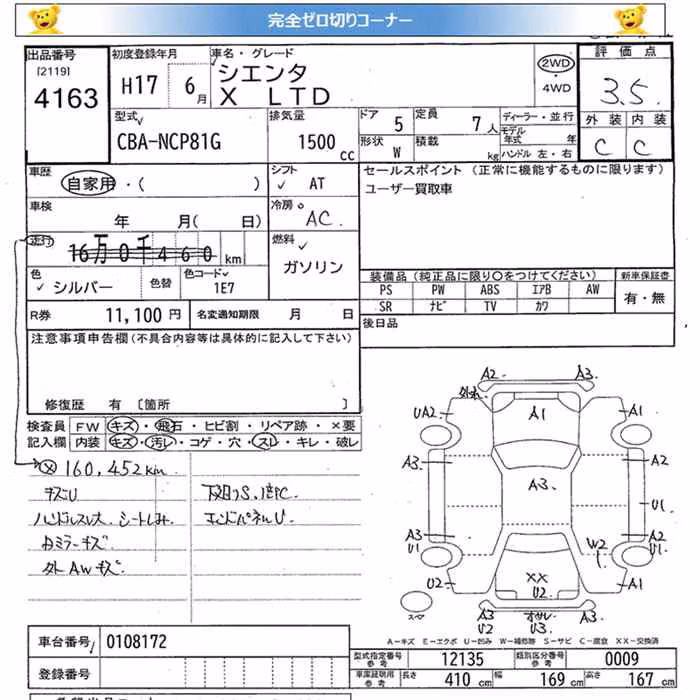 完全ゼロ切りコーナー
出品番号
[2119]
4163
初度登録年月
H17 6月
車名・グレード
シエンタ
X LTD
2WD
・4WD
評価点
3.5
外装 内装
C C
型式
CBA-NCP81G
排気量
1500 cc
ドア 5
定員 7人
形状 W
積載 kg
ディーラー・並行
モデル年式 年
ハンドル 左・右
車歴
自家用・( )
シフト
AT
セールスポイント (正常に機能するものに限ります)
ユーザー買取車
車検
年 月( 日)
冷房
AC
走行
16万0千460 km
燃料
ガソリン
色
シルバー
色替
色コード
1E7
装備品 (純正品に限り○をつけてください)
PS PW ABS エアB AW
SR ナビ TV カワ
新車保証書
有・無
R券 11,100 円
名変通知期限 月 日
後日品
注意事項申告欄(不具合内容等は具体的に記入して下さい)
修復歴 有 〔箇所 〕
検査員
記入欄
FW キズ・飛石・ヒビ割・リペア跡・×要
内装 キズ・汚レ・コゲ・穴・スレ・キレ・破レ
160,452km
キズU
ハンドルスレ大 シートしみ.
内ミラーキズ
外AWキズ
下廻りS.腐C
エンドパネルU
A2 A3
外れ
UA2
A1
A1
A3
A2
A3
U1
A3
U1
A2
U1
W2
XX
U2
U2
A1
スペア
A3
U2
U3
A3
A-キズ E-エクボ U-凹み W-補修跡 S-サビ C-腐食 XX-交換済
車台番号 0108172
登録番号
型式指定番号
参考
12135
類別区分番号
参考
0009
車庫証明用
参考
長さ 410 cm
幅 169 cm
高さ 167 cm